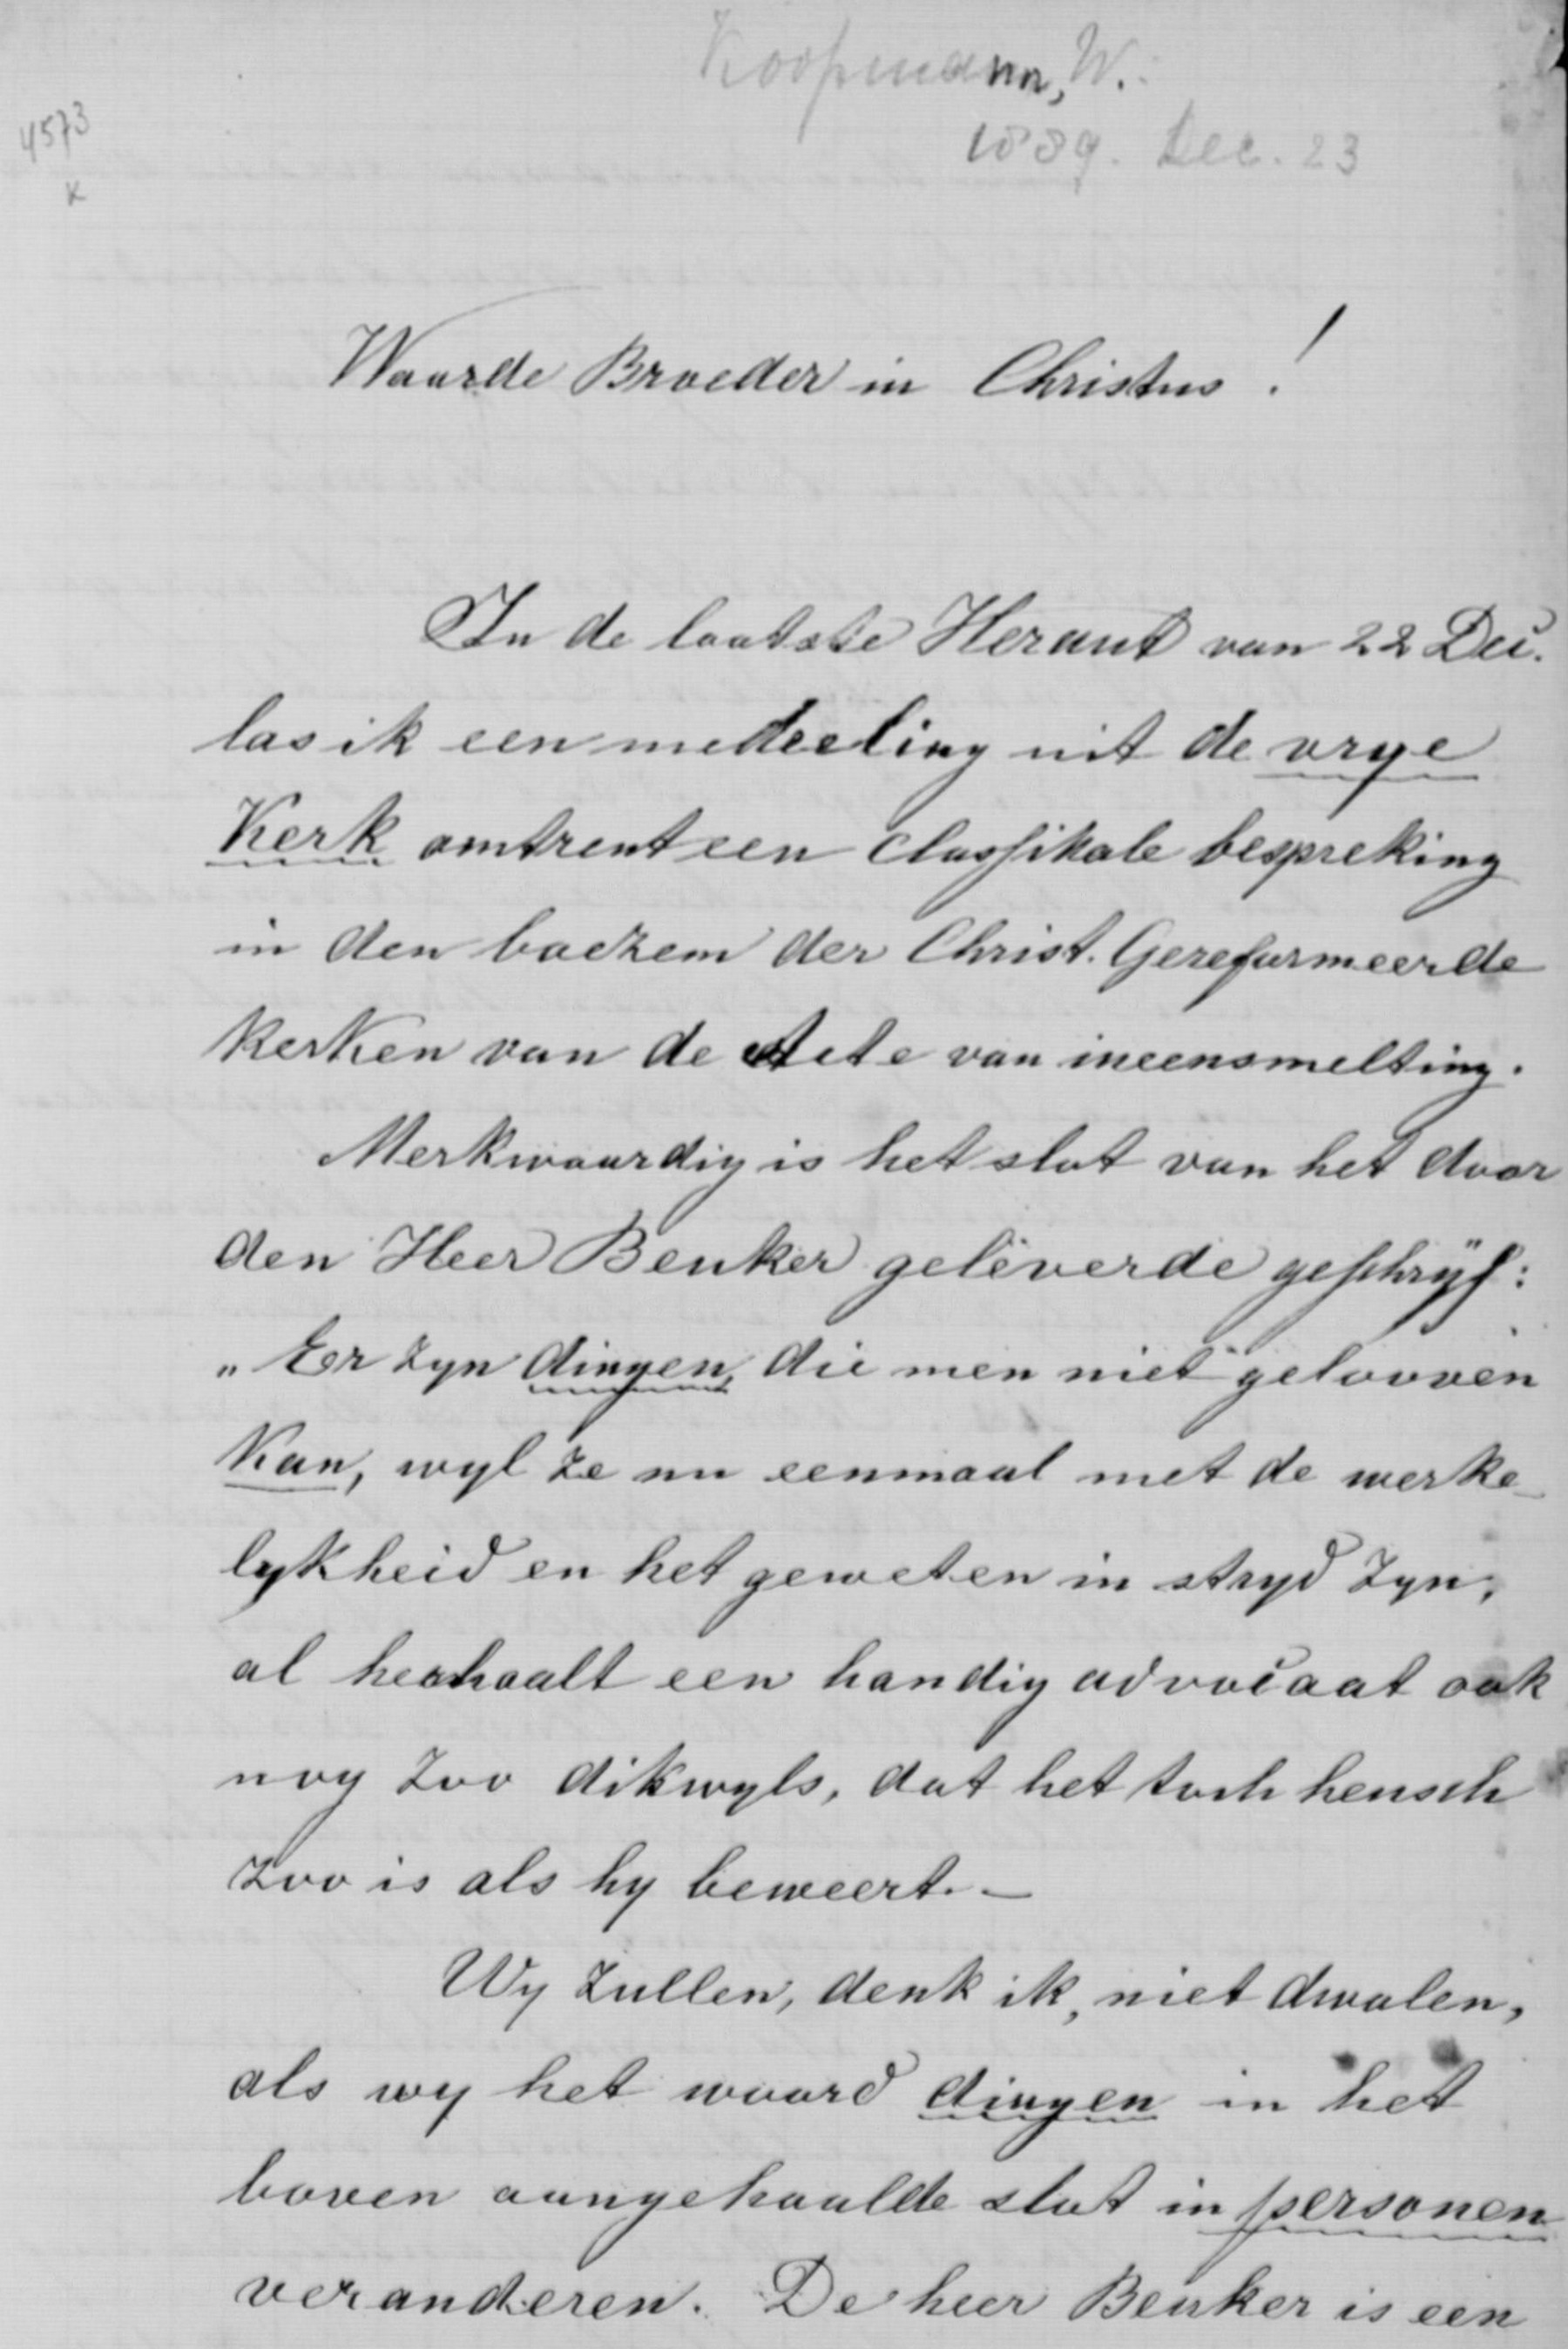 Koopmann, W.
1889. Dec. 23
4573
x
Waarde Broeder in Christus!
In de laatste Heraut van 22 Dec.
las ik een medeeling uit de vrye
Kerk omtrent een classikale bespreking
in den boezem der Christ. Gereformeerde
kerken van de acte van ineensmelting.
Merkwaardig is het slot van het door
den Heer Beuker geleverde geschryf:
„Er zyn dingen, die men niet gelooven
kan, wyl ze nu eenmaal met de werke-
lykheid en het geweten in stryd zyn,
al herhaalt een handig advocaat ook
nog zoo dikwyls, dat het toch heusch
zoo is als hy beweert.—
Wy zullen, denk ik, niet dwalen,
als wy het woord dingen in het
boven aangehaalde slot in personen
veranderen. De heer Beuker is een